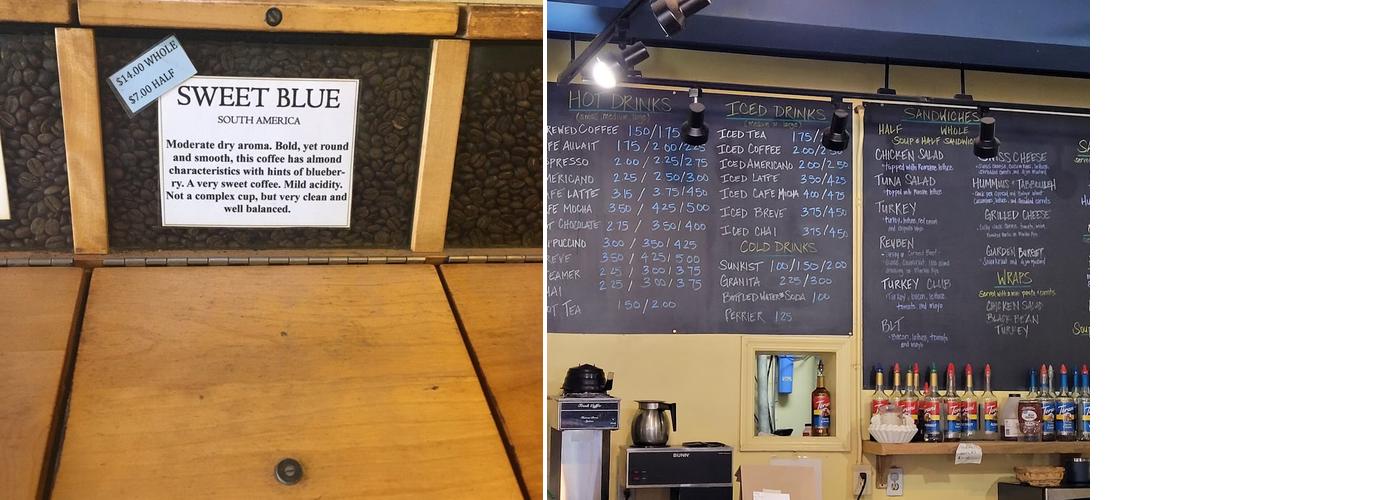 $14.00 WHOLE
$7.00 HALF
SWEET BLUE
SOUTH AMERICA
Moderate dry aroma. Bold, yet round
and smooth, this coffee has almond
characteristics with hints of blueber-
ry. A very sweet coffee. Mild acidity.
Not a complex cup, but very clean and
well balanced.
HOT DRINKS
(small, medium, large)
REWED COFFEE 1.50/1.75
FE AULAIT 1.75/2.00/2.25
PRESSO 2.00/2.25/2.75
MERICANO 2.25/2.50/3.00
FE LATTE 3.15/3.75/4.50
FE MOCHA 3.50/4.25/5.00
T CHOCOLATE 2.75/3.50/4.00
PUCCINO 3.00/3.50/4.25
REVE 3.50/4.25/5.00
EAMER 2.25/3.00/3.75
HAI 2.25/3.00/3.75
OT TEA 1.50/2.00
ICED DRINKS
ICED TEA 1.75/
ICED COFFEE 2.00/2.50
ICED AMERICANO 2.00/2.50
ICED LATTE 3.50/4.25
ICED CAFE MOCHA 4.00/4.75
ICED BREVE 3.75/4.50
ICED CHAI 3.75/4.50
COLD DRINKS
SUNKIST 1.00/1.50/2.00
GRANITA 2.25/3.00
BOTTLED WATER SODA 1.00
PERRIER 1.25
SANDWICHES
HALF WHOLE
SOUP & HALF SANDWICH
CHICKEN SALAD
topped with Romaine lettuce
TUNA SALAD
topped with Romaine lettuce
TURKEY
REUBEN
TURKEY CLUB
Turkey, bacon, lettuce,
tomato, and mayo
BLT
Bacon, lettuce, tomato
and mayo
SWISS CHEESE
HUMMUS & TABBOULEH
GRILLED CHEESE
GARDEN BURGER
WRAPS
CHICKEN SALAD
BLACK BEAN
TURKEY
BUNN
Torani